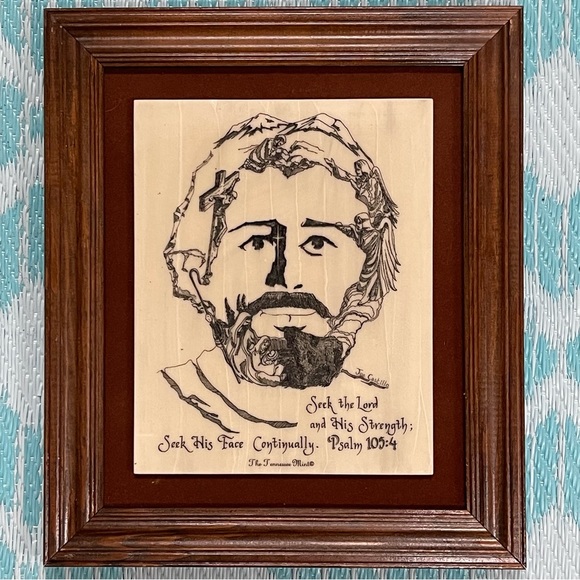 Jim Castillo
Seek the Lord
and His Strength;
Seek His Face Continually. Psalm 105:4
The Tennessee Mint©